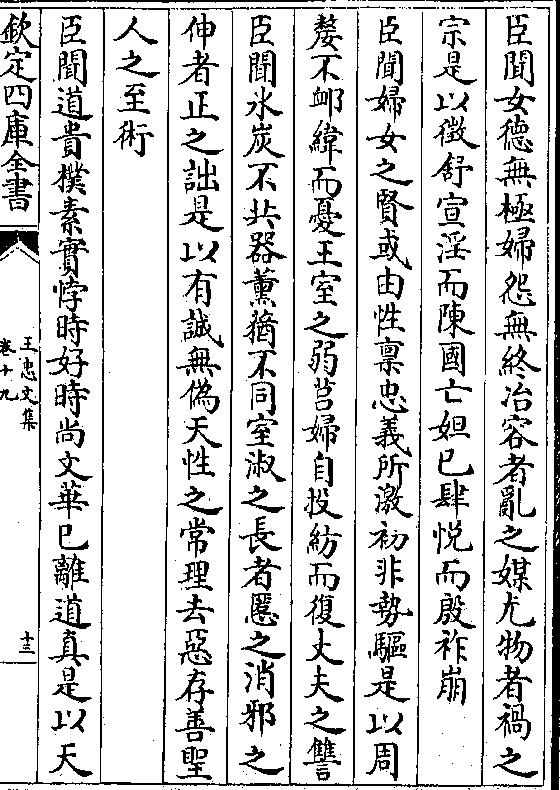 臣聞女德無極婦怨無終冶容者亂之媒尤物者禍之
宗是以徵舒宣淫而陳國亡妲已肆悅而殷祚崩
臣聞婦女之賢或由性禀忠義所激初非勢驅是以周
嫠不䘏緯而憂王室之弱莒婦自投紡而復丈夫之讐
臣聞氷炭不共器薰蕕不同室淑之長者慝之消邪之
伸者正之詘是以有誠無偽天性之常理去惡存善聖
人之至術
臣聞道貴樸素實悖時好時尚文華已離道真是以天
欽定四庫全書
王忠文集
卷十九
十三